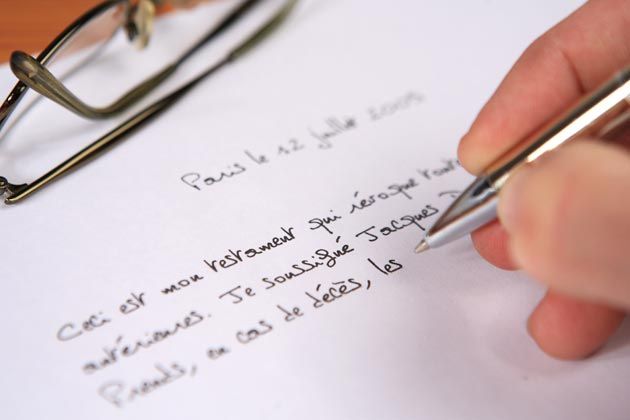 Paris le 12 juillet 2005
Ceci est mon testament qui révoque
antérieures. Je soussigné Jacques
Prends, en cas de décès, les